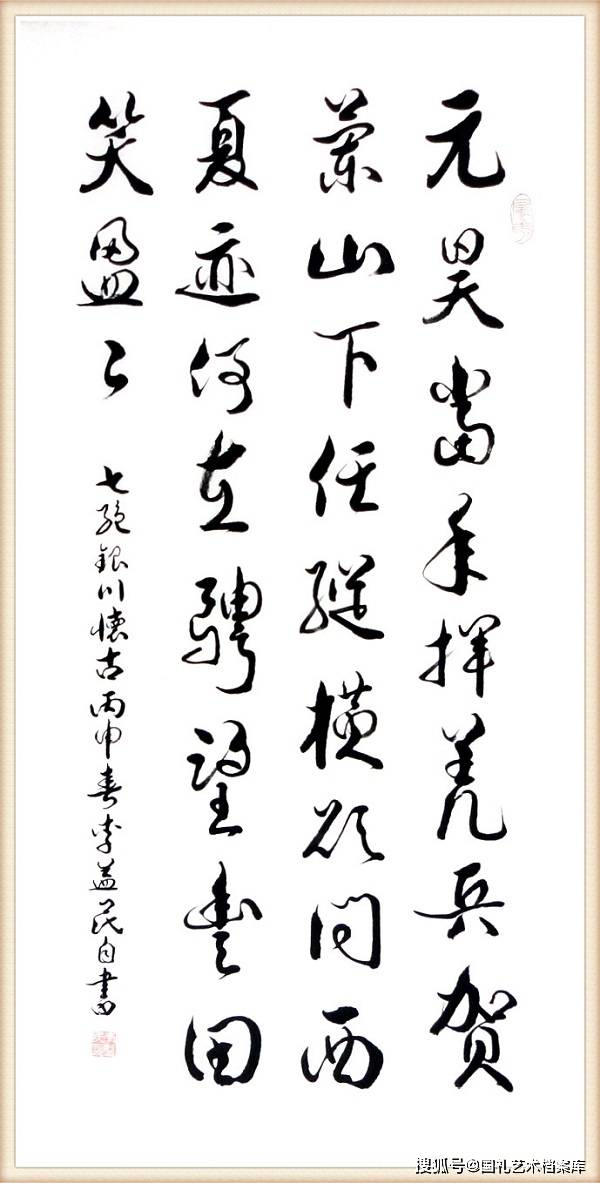 元昊當年揮羌兵賀
蘭山下任縱橫欲問西
夏迹何在騁望豐田
笑盈々
七絕銀川懷古丙申春李益民自書
搜狐号@国礼艺术档案库